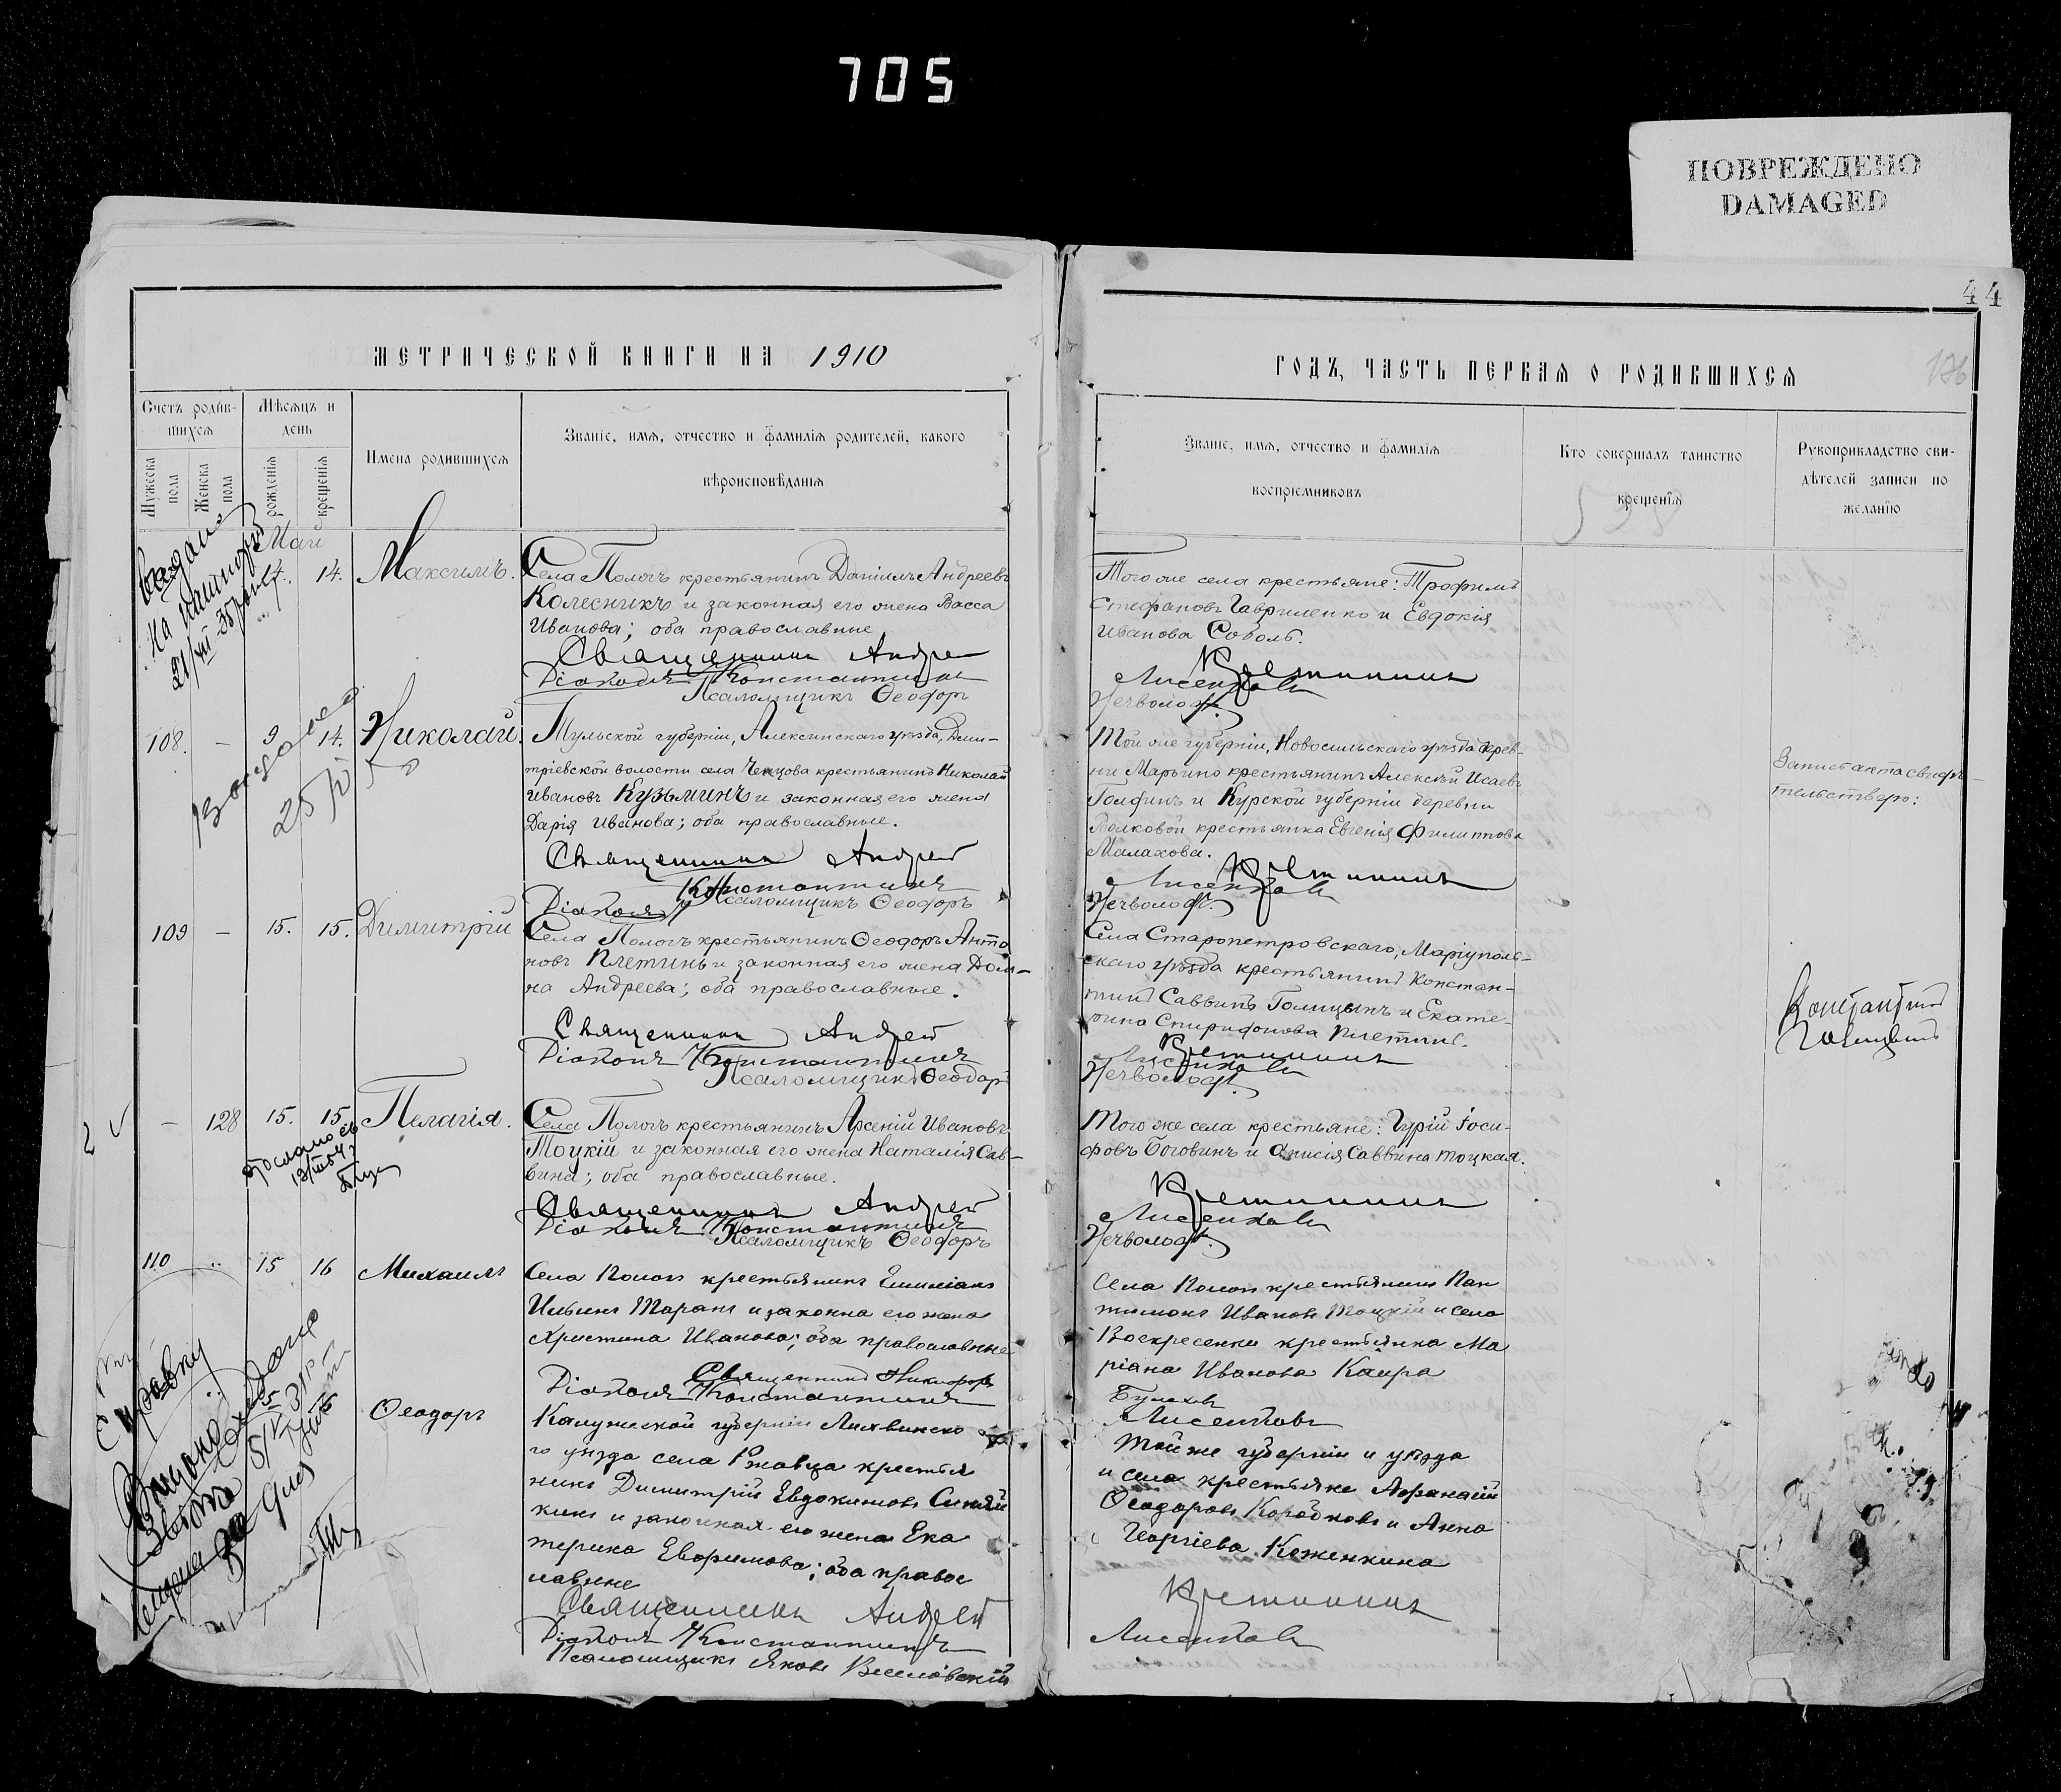 705
ПОВРЕЖДЕНО
DAMAGED
44
МЕТРИЧЕСКОЙ КНИГИ НА 1910
ГОДЪ, ЧАСТЬ ПЕРВАЯ О РОДИВШИХСЯ
136
Счетъ родив-
шихся
Мѣсяцъ и
день
Мужеска
пола
Женска
пола
рожденія
крещенія
Имена родившихся
Званіе, имя, отчество и фамилія родителей, какого
вѣроисповѣданія
Званіе, имя, отчество и фамилія
воспріемниковъ
Кто совершалъ таинство
крещенія
Рукоприкладство сви-
дѣтелей записи по
желанію
Май
14. Максимъ.
Села Пологъ крестьянинъ Даніилъ Андреевъ
Колесникъ и законная его жена Васса
Иванова; оба православные
Священникъ Андрей
Діаконъ Константинъ
Псаломщикъ Ѳеодоръ
Того же села крестьяне: Трофимъ
Стефановъ Гавриленко и Евдокія
Иванова Соболь.
Лисенковъ
108. — 9 14. Николай.
Тульской губерніи, Алексинскаго уѣзда, Дми-
тріевской волости села Ченцова крестьянинъ Николай
Ивановъ Кузьминъ и законная его жена
Дарія Иванова; оба православные.
Священникъ Андрей
Константинъ
Псаломщикъ Ѳеодоръ
Діаконъ
Той же губерніи, Новосильскаго уѣзда дерев-
ни Марьино крестьянинъ Алексѣй Исаевъ
Голфинъ и Курской губерніи деревни
Волковой крестьянка Евгенія Филиппова
Малахова.
Лисенковъ
Запись акта свидѣ-
тельствую:
109 — 15. 15. Димитрій
Села Пологъ крестьянинъ Ѳеодоръ Анто
новъ Плетинь и законная его жена Дом-
на Андреева; оба православные.
Священникъ Андрей
Діаконъ Константинъ
Псаломщикъ Ѳеодоръ
Села Старопетровскаго, Маріуполь-
скаго уѣзда крестьянинъ Констан-
тинъ Саввинъ Голицынъ и Екате-
рина Спиридонова Плетинь.
Лисенковъ
Константинъ
Голицынъ
— 128 15. 15 Пелагія.
Села Пологъ крестьянинъ Арсеній Ивановъ
Тоцкій и законная его жена Наталія Сав-
вина; оба православные.
Священникъ Андрей
Діаконъ Константинъ
Псаломщикъ Ѳеодоръ
Того же села крестьяне: Гурій Іоси-
фовъ Боговинъ и Анисія Саввина Тоцкая.
Лисенковъ
110 .. 15 16 Михаилъ
Села Пологъ крестьянинъ Емиліанъ
Ильинъ Таранъ и законна его жена
Христина Иванова; оба православные
Священникъ Никифоръ
Діаконъ Константинъ
Села Пологъ крестьянинъ Пан
тилмонъ Ивановъ Тоцкій и села
Воскресенки крестьянка Ма
ріана Иванова Каира
Лисенковъ
Ѳеодоръ
Калужской губерніи Лихвинско
го уѣзда села Ржавца крестья
нинъ Димитрій Евдокимовъ Синяй
кинъ и законная его жена Ека
терина Евфимова; оба правос
лавные
Священникъ Андрей
Діаконъ Константинъ
Псаломщикъ Яковъ Веселовскій
Той же губерніи и уѣзда
и села крестьяне Афанасій
Ѳеодоровъ Коробковъ и Анна
Георгіева Кеженкина
Лисенковъ
Справку